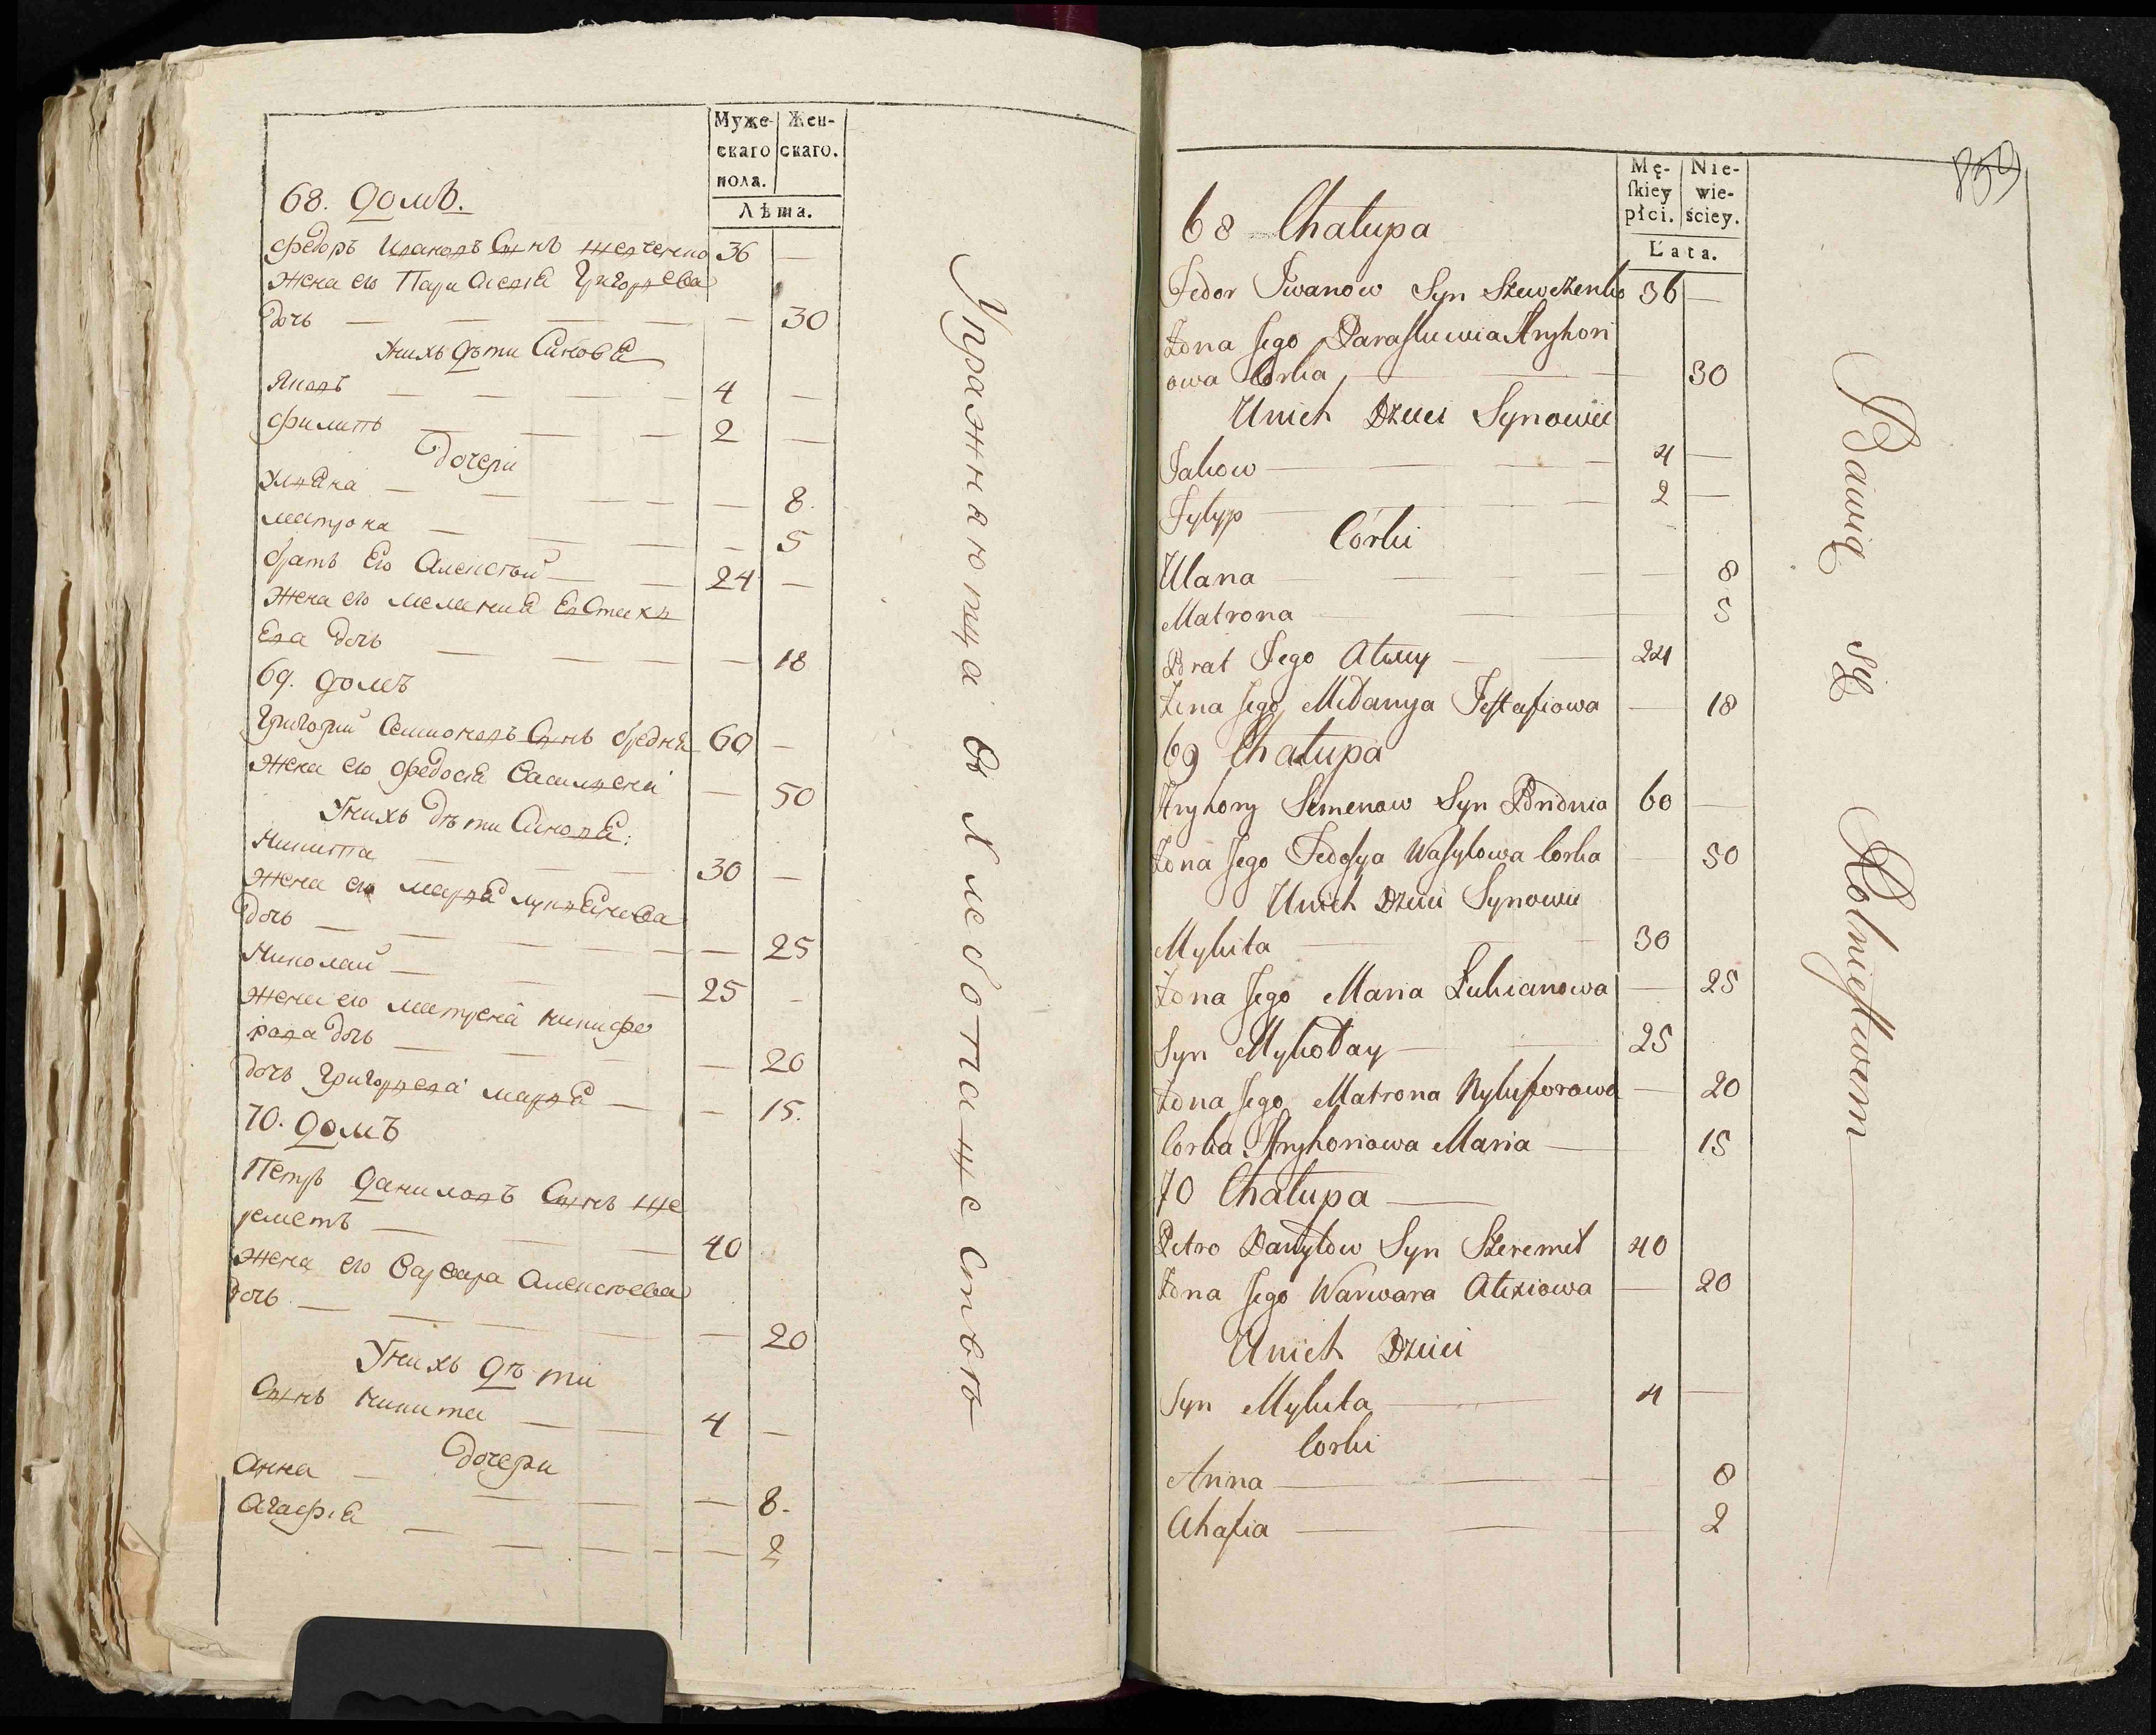 Муже-
скаго
пола.
Жен-
скаго.
Лѣта.
68. Домъ.
Федоръ Ивановъ Сынъ Шевченко 36 —
Жена его Параскевія Григорьева
дочь — — — — — 30
У нихъ дѣти Синовя
Яковъ — — — — 4 —
Филипъ — — — 2 —
Дочери
Уляна — — — — — 8.
Матрона — — — — 5
братъ Его Алексѣй — — 24 —
Жена его Меланія Евстахи
Ева дочь — — — — 18
69. Домъ
Григорій Семионовъ Сынъ бредня 60 —
Жена его Федосія Васильева — 50
У нихъ дѣти Синовя:
Никита — — 30 —
Жена его Марья Лукьянева
дочь — — — — — 25
Николай — — — 25 —
Жена его Матрена Никифе
рова дочь — — — — 20
дочь Григорьева Марья — — 15.
70. Домъ
Петръ Даниловъ Сынъ Ше
реметъ — — — 40
Жена его Варвара Алексѣева
дочь — — — — — 20
У нихъ Дѣти
Сынъ Никита — — 4 —
Дочери
Анна — — — — 8.
Агафія — — — — — 2
Упражняютца въ Хлебопашествѣ
859
Mę-
ſkiey
płci.
Nie-
wie-
ściey.
Lata.
68 Chałupa
Fedor Iwanow Syn Szewczenko 36 —
Żona Jego Paraskiewia Hryhori
owa Corka — — 30
Unich Dzieci Synowie
Jakow — — — 4 —
Fylyp — — 2 —
Córki
Ulana — — — — 8
Matrona — — 5
Brat Jego Alexy — — 24
Żena Jego Mełanya Jeſtafiowa — 18
69 Chałupa
Hryhory Semenow Syn Brydnia 60 —
Żona Jego Fedoſya Waſylowa Corka — 50
Unich Dzieci Synowie
Mykita — — 30
Żona Jego Maria Łukianowa — 25
Syn Mykołay — — 25
Żona Jego Matrona Nykiforowa — 20
Corka Hryhoriowa Maria — 15
70 Chałupa —
Petro Danyłow Syn Szeremet 40
Żona Jego Warwara Alexiowa — 20
Unich Dzieci
Syn Mykita — 4 —
Corki
Anna — — — 8
Ahafia — — — 2
Bawią się Rolnictwem